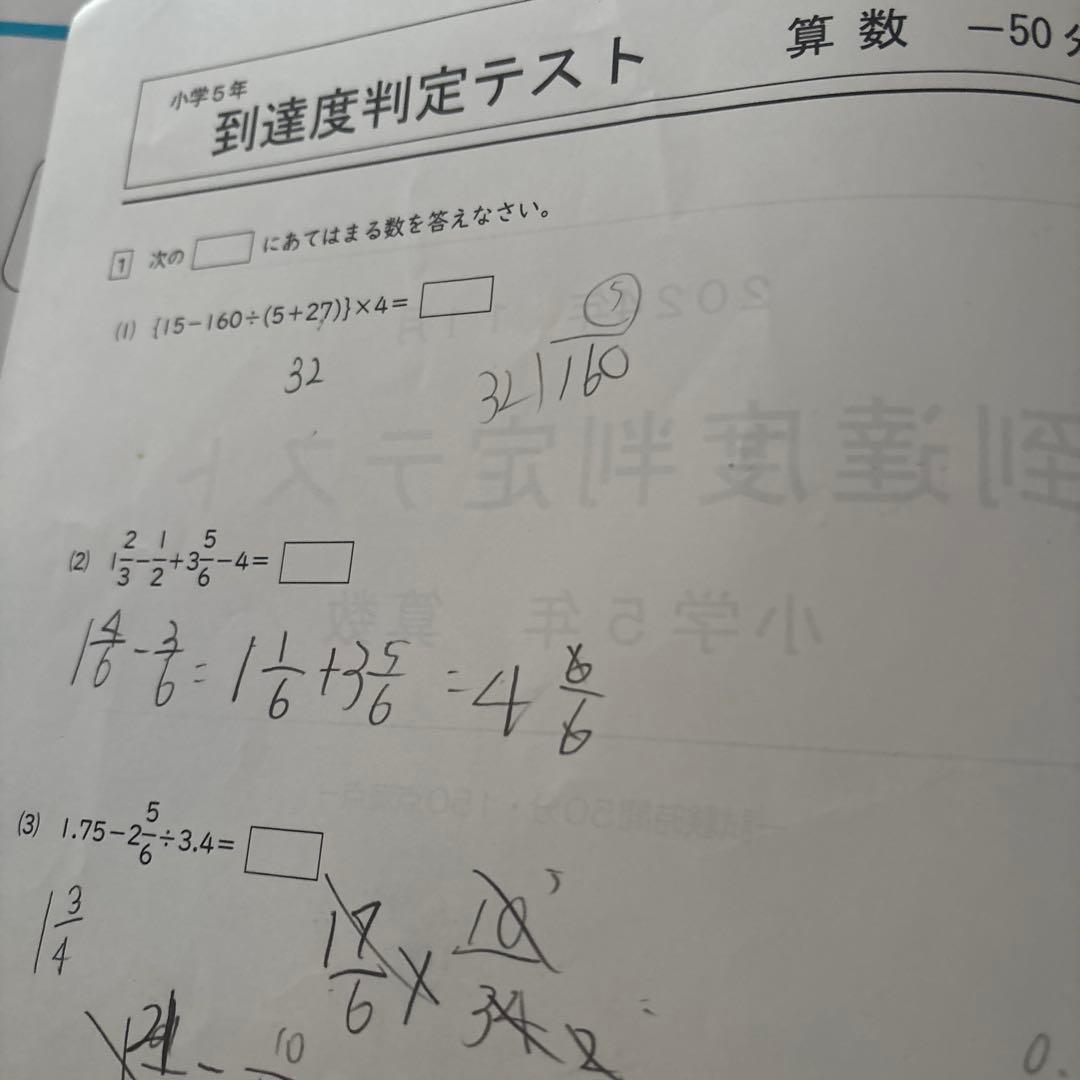 小学5年
到達度判定テスト
算数 －50
1 次の にあてはまる数を答えなさい。
(1) {15－160÷(5＋27)}×4＝
32
5
32)160
(2) 1 2/3－1/2＋3 5/6－4＝
1 4/6 - 3/6 = 1 1/6 + 3 5/6 = 4 6/6
(3) 1.75－2 5/6÷3.4＝
1 3/4
17/6 × 10/34 =
5
2
21 - 10
0.